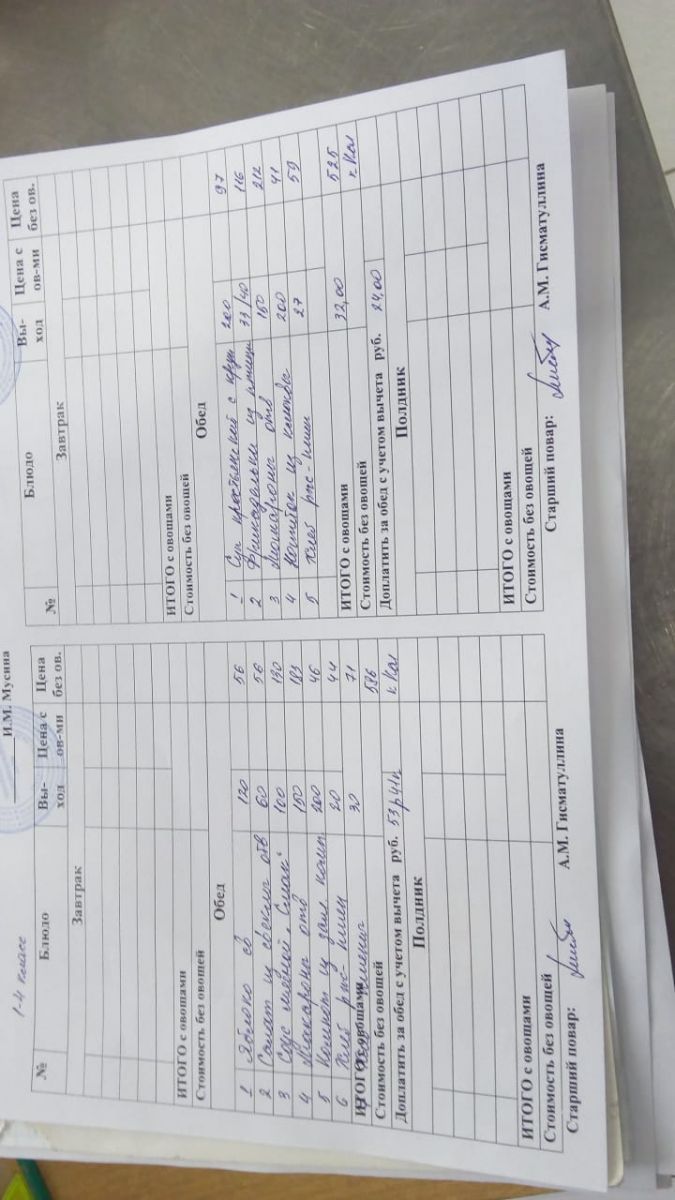 1-4 класс
И.М. Мусина
№ Блюдо Вы-ход Цена с ов-ми Цена без ов.
Завтрак
ИТОГО с овощами
Стоимость без овощей
Обед
1 Яблоко св 120 56
2 Салат из свеклы отв 60 56
3 Соус мясной „Смак“ 100 130
4 Макароны отв 150 183
5 Компот из зам. комп 200 46
6 Хлеб рж-пшен 20 44
пшенич 30 71
ИТОГО с овощами 536
Стоимость без овощей к Кал
Доплатить за обед с учетом вычета руб. 53р41к
Полдник
ИТОГО с овощами
Стоимость без овощей
Старший повар: А.М. Гисматуллина
№ Блюдо Вы-ход Цена с ов-ми Цена без ов.
Завтрак
ИТОГО с овощами
Стоимость без овощей
Обед
1 Суп крестьянский с круп 200 97
2 Фрикадельки из птицы 33/40 116
3 Макароны отв 150 212
4 Напиток из клюквы 200 41
5 Хлеб ржс-пшен 27 59
ИТОГО с овощами 32,00 525
Стоимость без овощей к Кал
Доплатить за обед с учетом вычета руб. 24,00
Полдник
ИТОГО с овощами
Стоимость без овощей
Старший повар: А.М. Гисматуллина